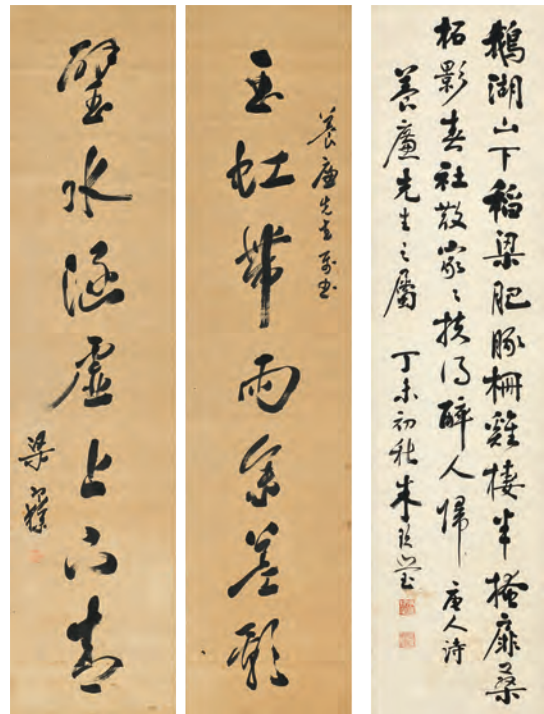 鵝湖山下稻粱肥豚柵雞棲半掩扉桑
柘影春社散家〻扶得醉人歸 唐人詩
養廉先生之屬 丁未初秋朱玖瑩
養廉先生
玉虹帶雨參差
璧水涵虛上下青
梁寒操